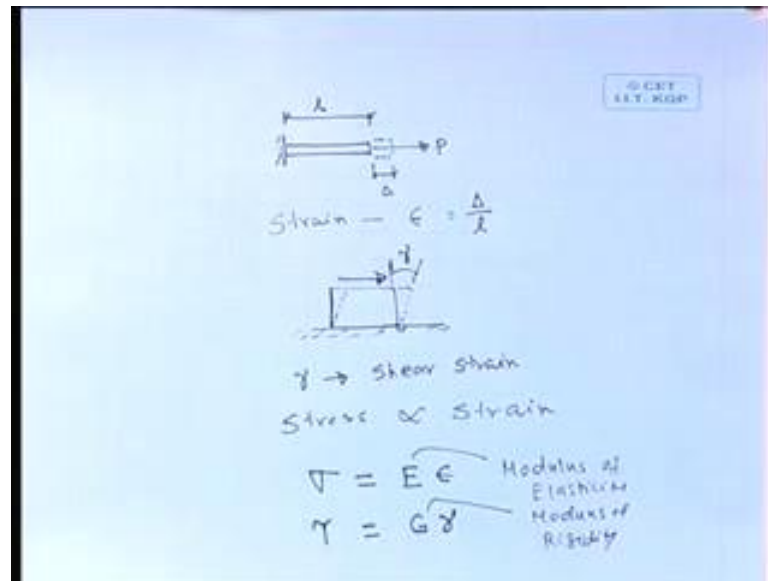 © CET
I.I.T. KGP
l
P
Δ
Strain - ϵ = Δ/l
γ
γ → Shear Strain
Stress ∝ Strain
σ = E ϵ Modulus of
Elasticity
τ = G γ Modulus of
Rigidity